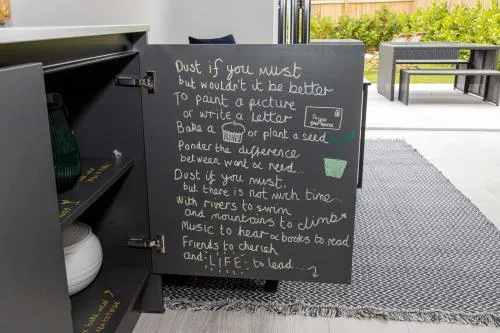 Dust if you must
but wouldn't it be better
To paint a picture
or write a letter
Bake a or plant a seed
Ponder the difference
between want & need...
Dust if you must,
but there is not much time,
With rivers to swim
and mountains to climb
Music to hear & books to read
Friends to cherish
and LIFE to lead....